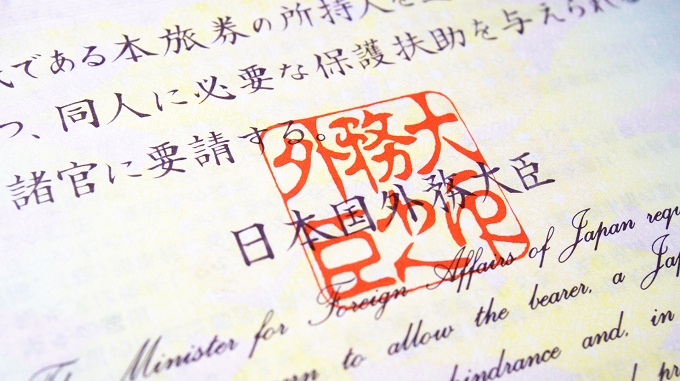 である本旅券の所持人を
つ、同人に必要な保護扶助を与えられ
諸官に要請する。
外務大
臣
日本国外務大臣
The Minister for Foreign Affairs of Japan
to allow the bearer, a
hindrance and, in